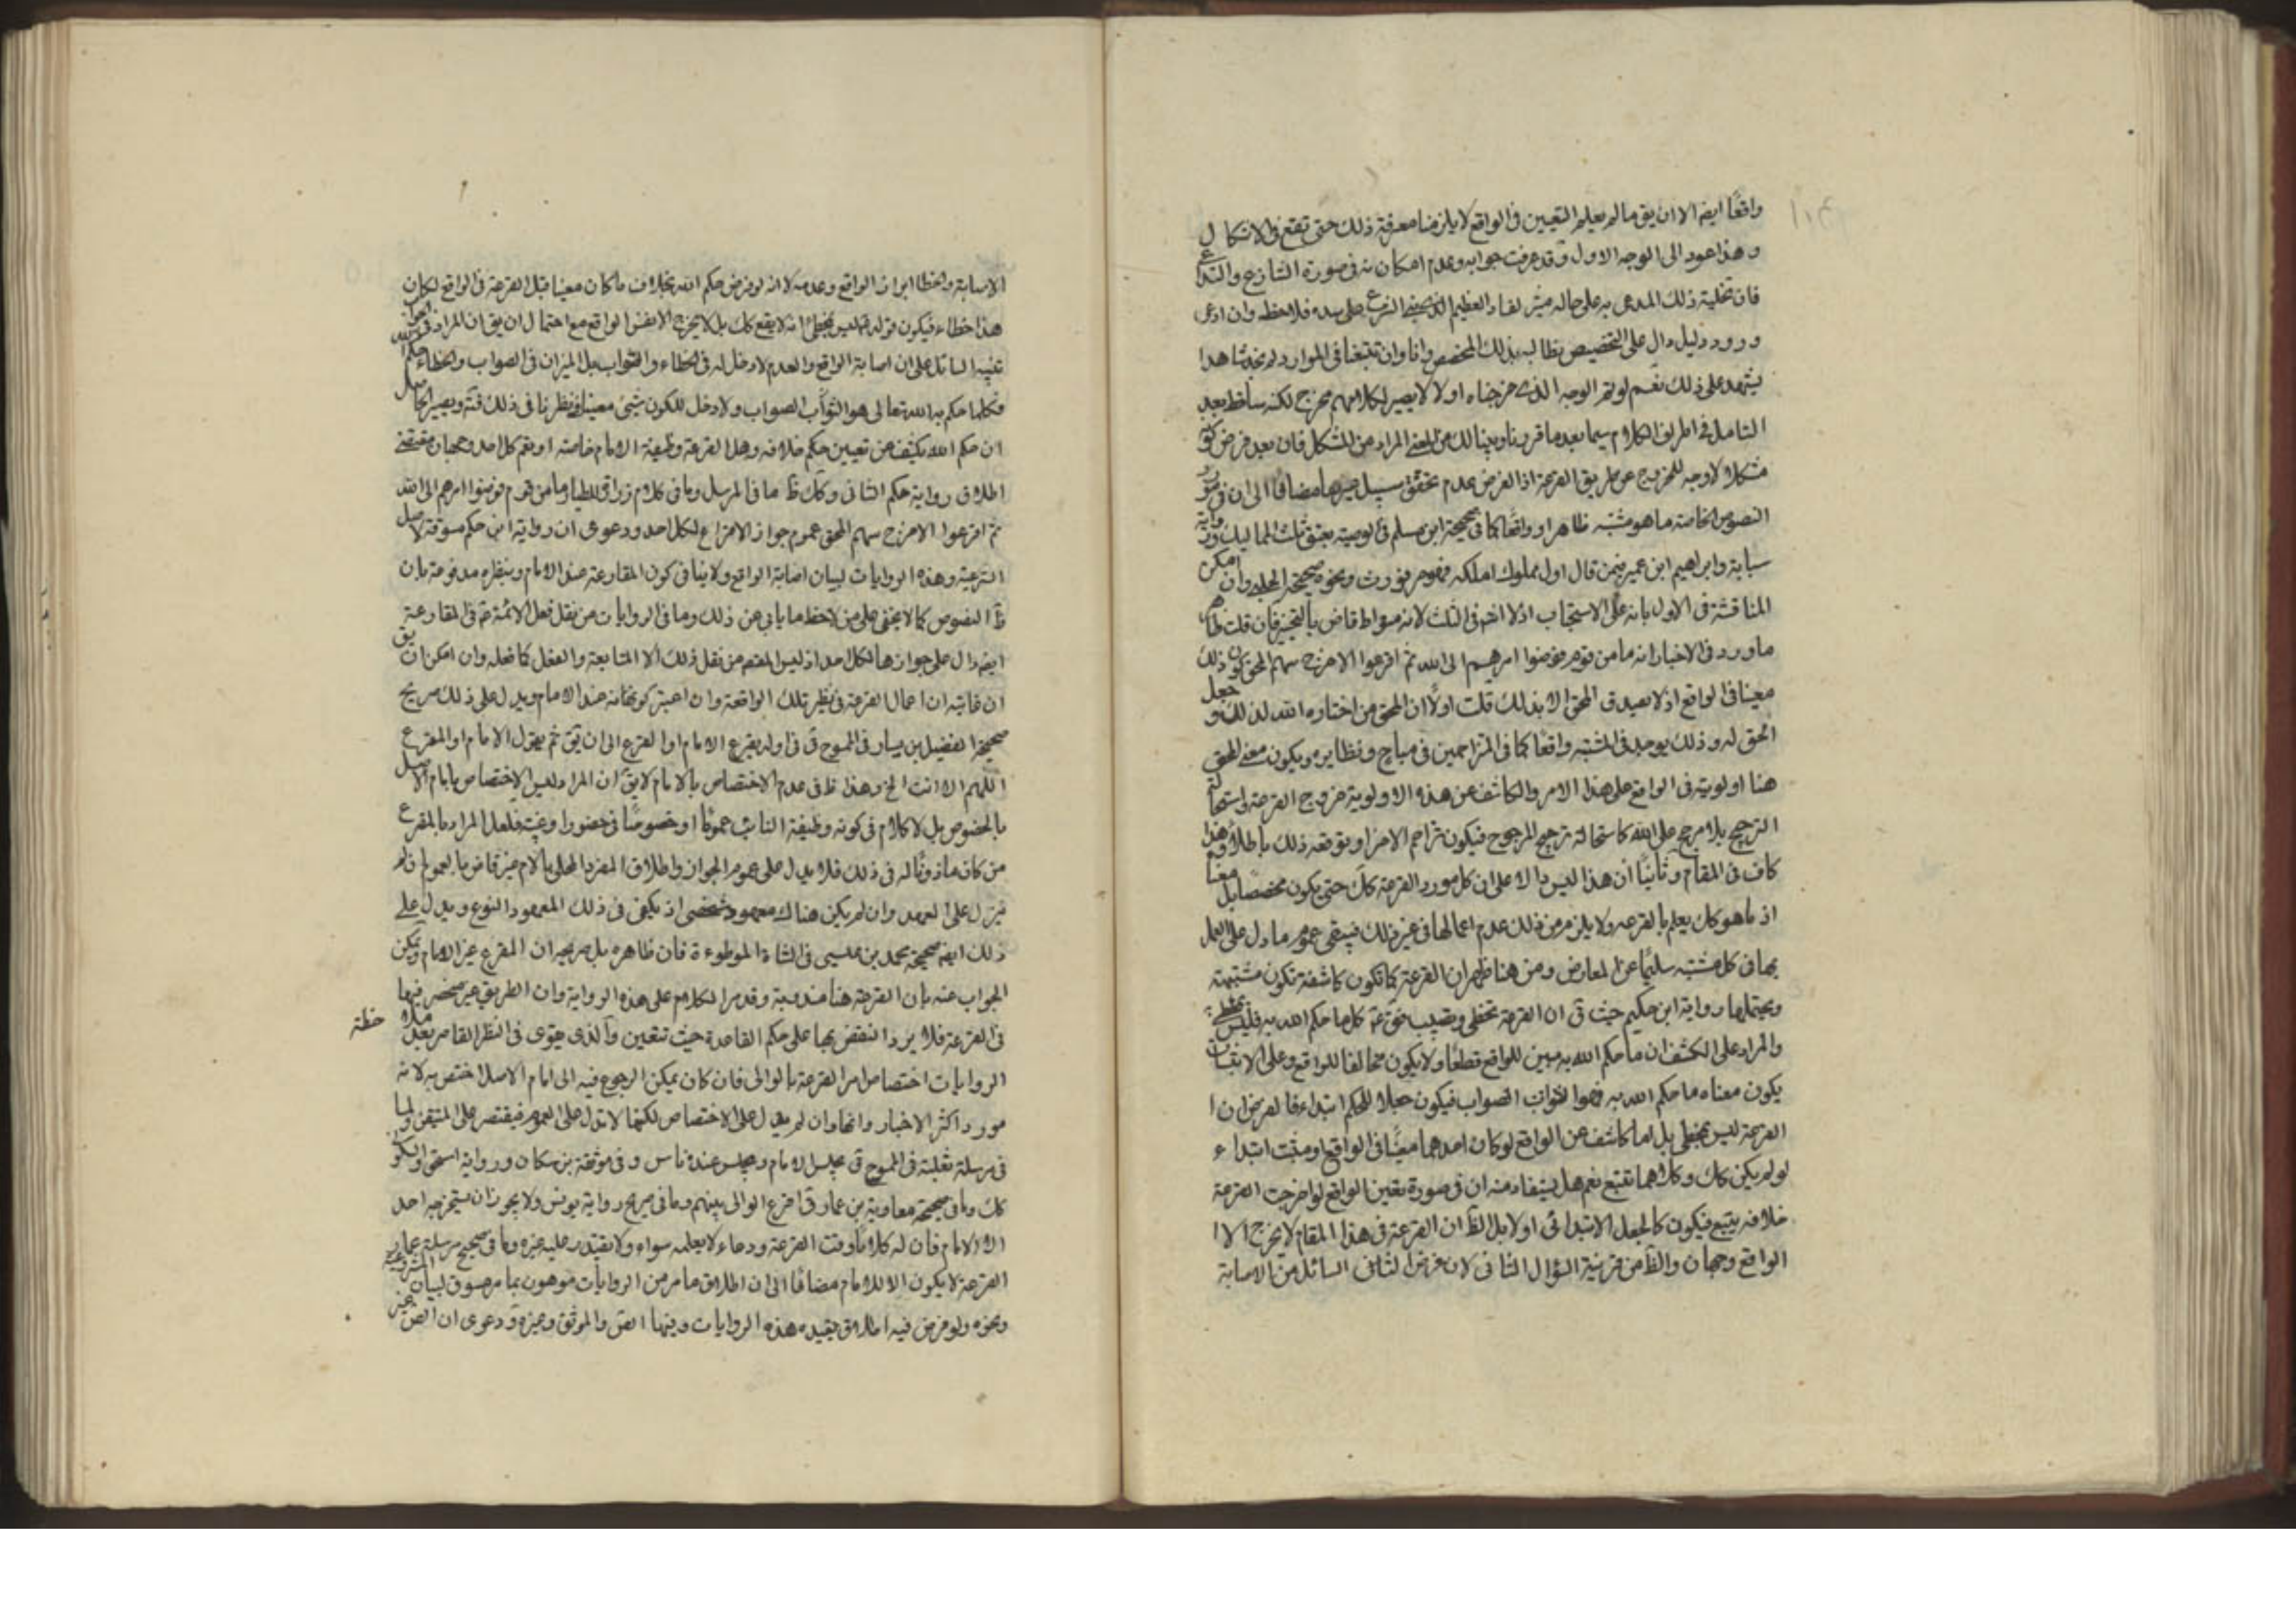 واقعًا ايضا الا ان يق ما لم يعلم التعيين فى الواقع لا يلزمنا معرفة ذلك حتى تقع فى الاشكال
وهذا عود الى الوجه الاول وقد عرفت جوابه وعدم امكانه فى صورة التنازع والتداع
فان تخلية ذلك المدعى به على حاله العظيم فلاحظ وان ادعى
ورود دليل دال على التخصيص نطالبه بذلك المخصص وانا وان تتبعنا فى الموارد لم نجد شاهدا
يشهد على ذلك نعم لو تم الوجه الذى خرجناه اولا لا يصير لكلامهم مخرج لكنه ساقط بعد
التامل فى اطراف الكلام سيما بعد ما قررنا وبينا لك من المعنى المراد من المشكل فان بعد فرض كونه
مشكلا لا وجه للخروج عن طريق القرعة اذ الفرض عدم تحقق سبيل غيرها مضافًا الى ان فى مورد
النصوص الخاصة ما هو مشتبه ظاهرا وواقعًا كما فى صحيحة ابن مسلم فى الوصية بعتق ثلث المماليك ورواية
سيابة وابراهيم ابن عمير فيمن قال اول مملوك املكه فهو حر فورث ونحوه صحيحة الحلبى وان امكن
المناقشة فى الاول بانه على الاستحباب فان قلت ظاهر
ما ورد فى الاخبار انه ما من قوم فوضوا امرهم الى الله ثم اقرعوا الا خرج سهم المحق كون ذلك
معينا فى الواقع اذ لا يصدق المحق الا بذلك قلت اولًا ان المحق من اختاره الله لذلك وجعل
الحق له وذلك يوجد فى المشتبه واقعًا كما فى المتزاحمين فى مباح ونظايره ويكون معنى المحق
هنا اولويته فى الواقع على هذا الامر والكاشف عن هذه الاولوية خروج القرعة واستحالة
الترجيح بلا مرجح على الله كاستحالة ترجيح المرجوح وهذا
كاف فى المقام وثانيًا ان هذا ليس دالا على ان كل مورد القرعة كك حتى يكون مخصصًا بل معناه
اذ ما هو كك يعلم بالقرعة ولا يلزم من ذلك عدم اعمالها فى غير ذلك فيبقى عموم ما دل على العمل
بها فى كل مشتبه سليمًا عن المعارض ومن هنا ظهر ان القرعة كما تكون كاشفة تكون مثبتة
ويحتملها رواية ابن حكيم حيث ق ان القرعة تخطى وتصيب فق ع كل ما حكم الله به فليس بمخطئ
والمراد على الكشف ان ما حكم الله به مبين للواقع قطعًا ولا يكون مخالفا للواقع وعلى الاثبات
يكون معناه ما حكم الله به فهو الصواب فيكون جعلا للحكم ابتداء فالغرض ان
القرعة ليس بمخطئ بل اما كاشف عن الواقع لو كان احدهما معينًا فى الواقع او مثبت ابتداء
لو لم يكن كك وكلاهما نعم هل يستفاد منه ان فى صورة تعين الواقع لو اخرجت القرعة
خلافه يتبع فيكون كالجعل الابتدائى او لا بل الظ ان القرعة فى هذا المقام لا يخرج الا
الواقع وجهان والظ من قرينة السؤال الثانى لان غرض السائل من الاصابة
الاصابة والخطا الواقع وعدمه لانه لو فرض حكم الله بخلاف ما كان معينا قبل القرعة فى الواقع لكان
هذا خطاء فيكون قوله ليس بمخطئ انه لا يقع كك بل لا يخرج الا نفس الواقع مع احتمال ان يق ان المراد
تنبيه السائل على ان اصابة الواقع والعدم لا دخل له فى الخطاء والصواب بل الميزان فى الصواب والخطاء حكم
فكلما حكم به الله تعالى هو الصواب ولا دخل للكون شيئ معينا فى نظرنا فى ذلك ويصير الحاصل
ان حكم الله يكشف عن تعيين حكم خلافه وهل القرعة وظيفة الامام خاصة او يعم كل احد وجهان مقتضى
اطلاق رواية حكم الثانى وكك ظ ما فى المرسل وما فى كلام زرارة للطيار ما من قوم فوضوا امرهم الى الله
ثم اقرعوا الا خرج سهم المحق عموم جواز الاقتراع لكل احد ودعوى ان رواية ابن حكم مسوقة لاصل
الشرعية وهذه الروايات لبيان اصابة الواقع ولا ينافى كون المقارعة عند الامام وبنظره مدفوعة بان
ظ النصوص كما لا يخفى على من لاحظ ما ياتى عن ذلك وما فى الروايات من نقل فعل الائمة ع فى المقارعة
ايضا دال على جوازها لكل احد اذ ليس من نقل ذلك الا المتابعة والفعل كما فعله وان امكن ان يق
ان غايته ان اعمال القرعة فى نظير تلك الواقعة وان اعتبر كونها عند الامام ويدل على ذلك صريح
صحيحة الفضيل بن يسار فى الممسوح ق فى اوله يقرع الامام او المقرع الى ان ق ثم يقول الامام او المقرع
اللهم انت الخ وهذا ظ فى عدم الاختصاص بالامام لا يق ان المراد ليس الاختصاص بامام الاصل
بالخصوص بل لا كلام فى كونه وظيفة النائب عمومًا او خصوصًا فى حضور او غيبة فلعل المراد بالمقرع
من كان ماذونًا له فى ذلك فلا يدل على عموم الجواز واطلاق المفرد المحلى بالام غير قاض بالعموم
فينزل على العهد وان لم يكن هناك معهود شخصى اذ يكفى فى ذلك المعهود النوع ويدل على
ذلك ايضا صحيحة محمد بن عيسى فى الشاة الموطوءة فان ظاهره بل صريحه ان المقرع غير الامام ويمكن
الجواب عنه بان القرعة هنا مندوبة وقد مر الكلام على هذه الرواية وان الطريق غير منحصر فيها
فى القرعة فلا يرد النقض بها على حكم القاعدة حيث تتعين والذى يقوى فى النظر القاصر بعد ملا
حظة
الروايات اختصاص امر القرعة بالوالى فان كان يمكن الرجوع فيه الى امام الاصل اختص به لانه
مورد اكثر الاخبار وانها وان لم يدل على الاختصاص لكنها لا تدل على العموم فيقتصر على المتيقن ولما
فى مرسلة ثعلبة فى الممسوح ق يجلس الامام ويجلس عنده ناس وفى موثقة بن مسكان ورواية اسحق والسكو
كك وما فى صحيحة معاوية بن عمار ق اقرع الوالى بينهم وما فى صريح رواية يونس ولا يجوز ان يستخرجه احد
الا الامام فان له كلامًا وقت القرعة ودعاء لا يعلمه سواه ولا يقتدر عليه غيره وما فى صحيح مرسلة عمار
القرعة لا يكون الا للامام مضافًا الى ان اطلاق ما مر من الروايات موهون بما مر مسوق لبيان الشرعية
ونحوه ولو فرض فيه اطلاق يقيده هذه الروايات وفيها الص والموثق وغيره ودعوى ان الص غير